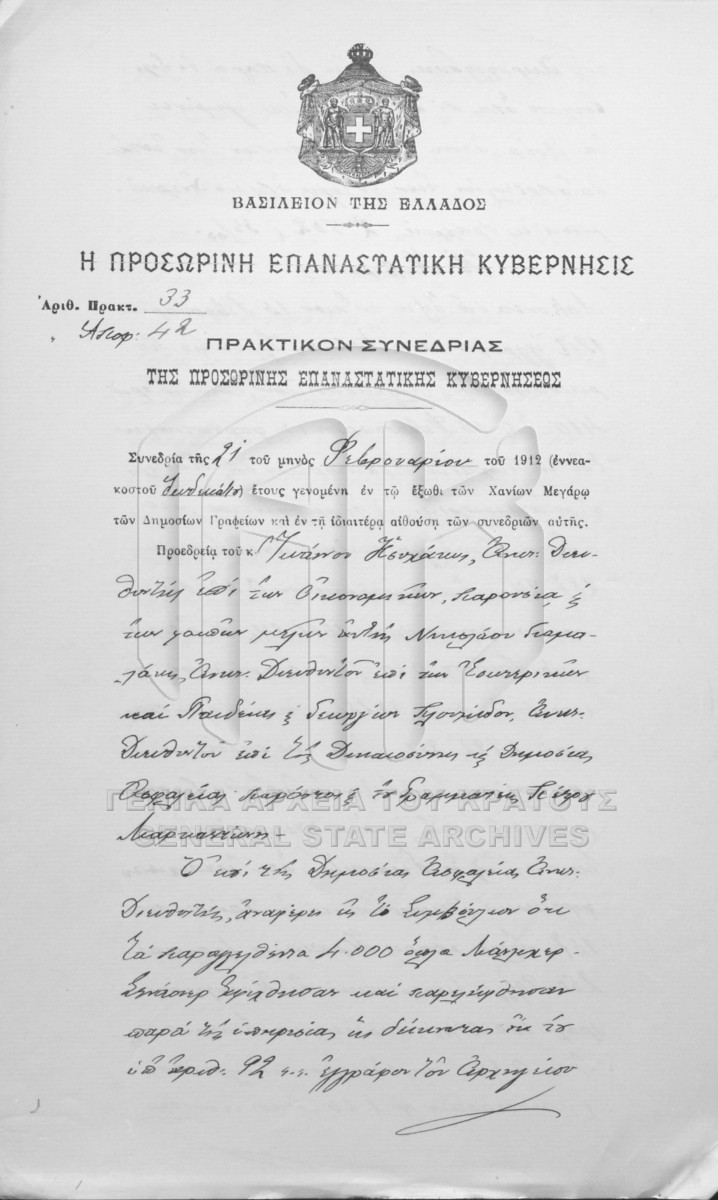 ΒΑΣΙΛΕΙΟΝ ΤΗΣ ΕΛΛΑΔΟΣ
Η ΠΡΟΣΩΡΙΝΗ ΕΠΑΝΑΣΤΑΤΙΚΗ ΚΥΒΕΡΝΗΣΙΣ
Ἀριθ. Πρακτ. 33
" Ἀποφ: 42
ΠΡΑΚΤΙΚΟΝ ΣΥΝΕΔΡΙΑΣ
ΤΗΣ ΠΡΟΣΩΡΙΝΗΣ ΕΠΑΝΑΣΤΑΤΙΚΗΣ ΚΥΒΕΡΝΗΣΕΩΣ
Συνεδρία τῆς 21 τοῦ μηνὸς Φεβρουαρίου τοῦ 1912 (ἐννεα-
κοστοῦ δωδεκάτου) ἔτους γενομένη ἐν τῷ ἔξωθι τῶν Χανίων Μεγάρῳ
τῶν Δημοσίων Γραφείων καὶ ἐν τῇ ἰδιαιτέρᾳ αἰθούσῃ τῶν συνεδριῶν αὐτῆς.
Προεδρείᾳ τοῦ κ. Ἰωάννου Ἀνωτ. Διευ-
θυντής ἐπί τῶν Οἰκονομικῶν, παρουσίᾳ
τῶν λοιπῶν μελῶν αὐτῆς Νικολάου Γιαμα-
λάκη, Ἀνωτ. Διευθυντοῦ ἐπί τῶν Ἐσωτερικῶν
καί Παιδείας Γεωργίου Ἀνωτ.
Διευθυντοῦ ἐπί τῆς Δικαιοσύνης Δημοσίας
Ἀσφαλείας, παρόντος τοῦ Γραμματέως Πέτρου
Μαρκαντώνη –
Ὁ ἐπί τῆς Δημοσίας Ἀσφαλείας Ἀνωτ.
Διευθυντής, ἀναφέρει εἰς τό Συμβούλιον ὅτι
τά παραγγελθέντα 4.000 ὅπλα Μάνλιχερ-
Σενάουερ καί παρελήφθησαν
παρά τῆς ὑπηρεσίας ἐκ τοῦ
ὑπ' ἀριθ. 92 ἐ.ἔ. ἐγγράφου τοῦ Ἀρχηγείου
ΓΕΝΙΚΑ ΑΡΧΕΙΑ ΤΟΥ ΚΡΑΤΟΥΣ
GENERAL STATE ARCHIVES